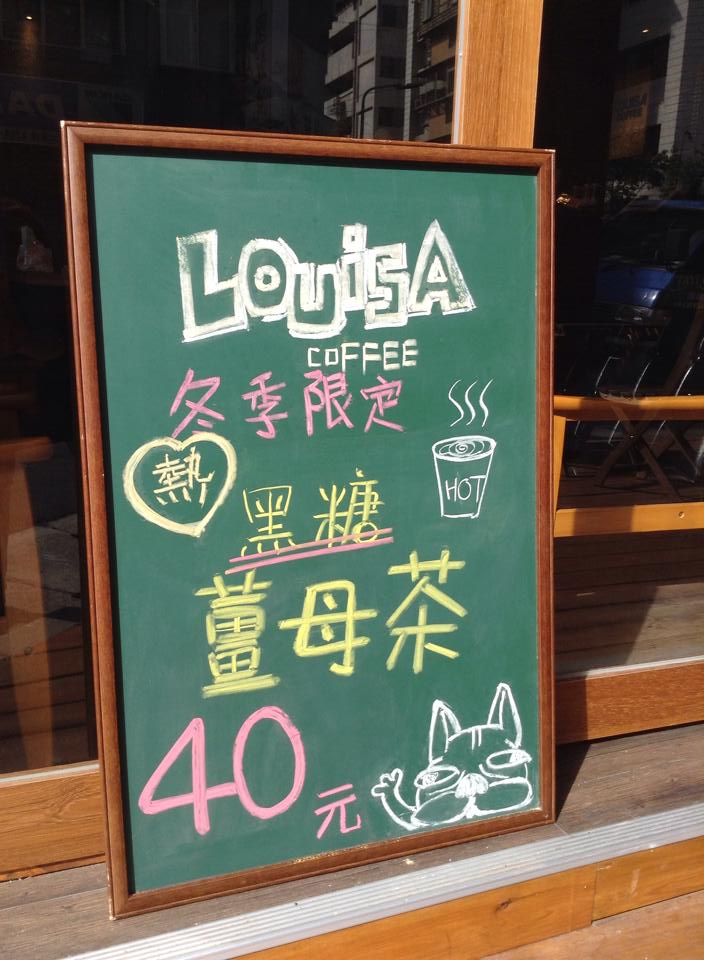 LOUiSA
COFFEE
冬季限定
熱
HOT
黑糖
薑母茶
40元